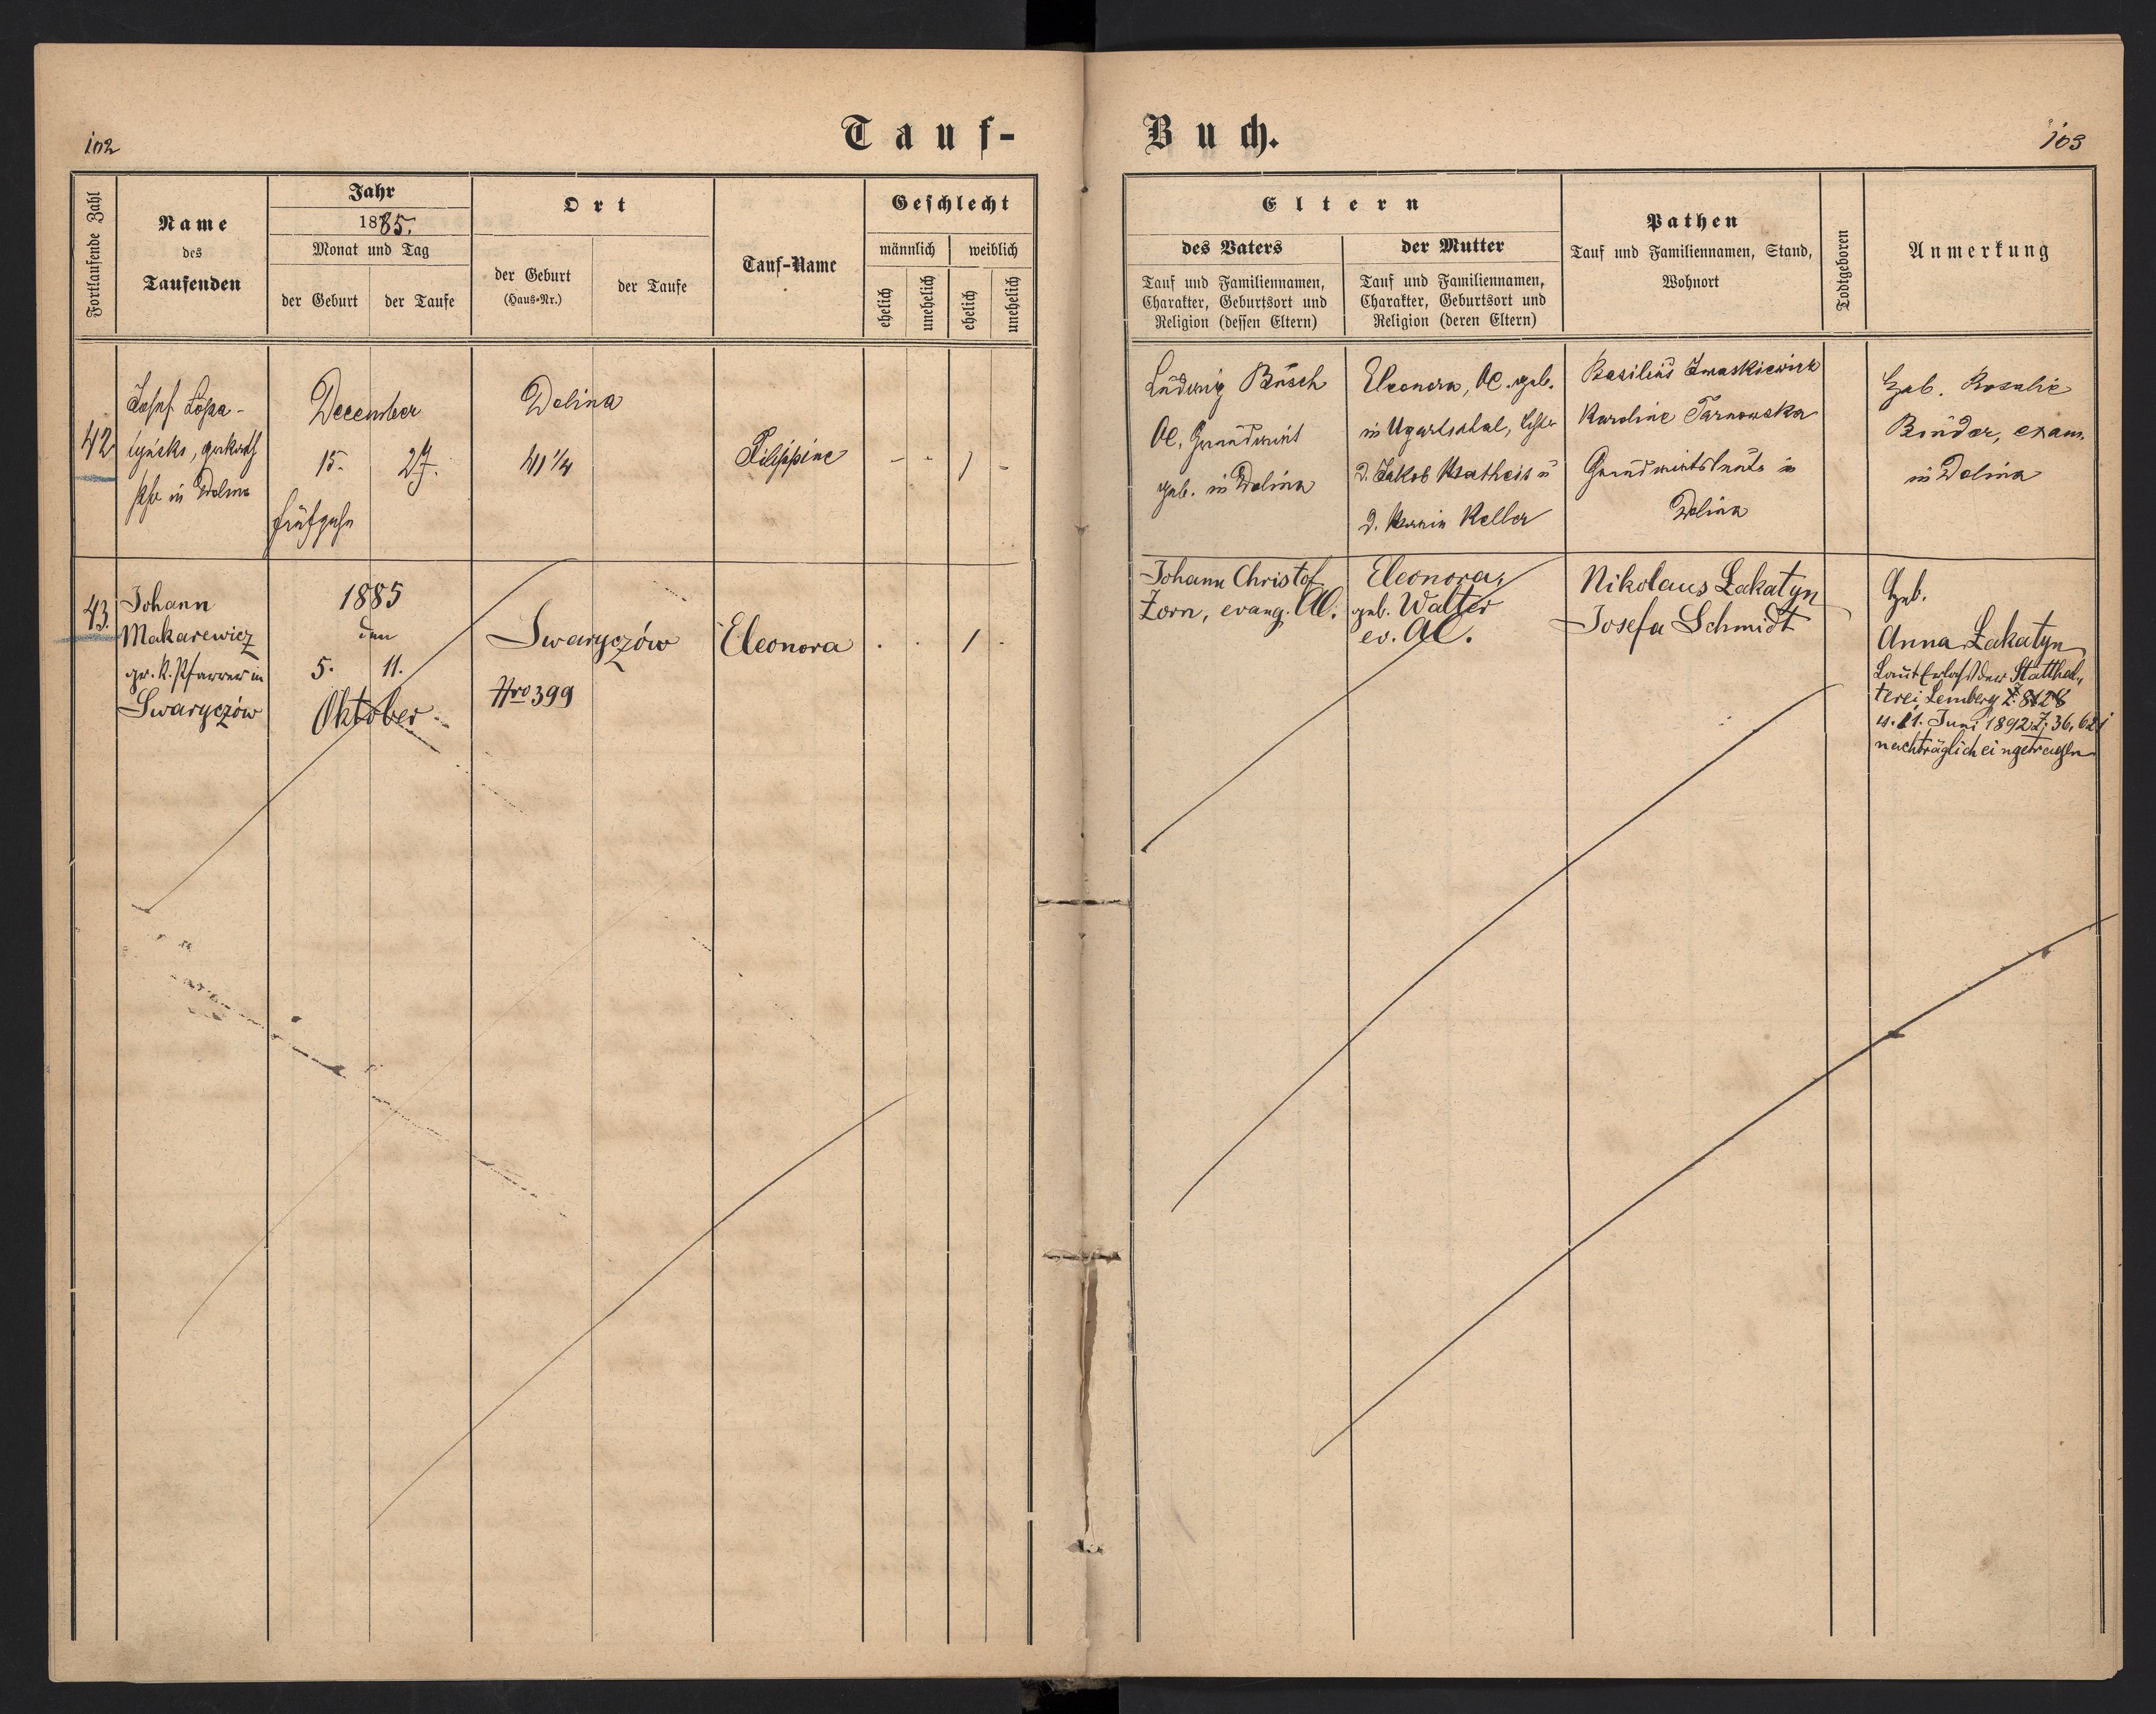 102
Tauf-
Buch.
103
Fortlaufende Zahl
Name
des
Taufenden
Jahr
1885.
Monat und Tag
der Geburt
der Taufe
Ort
der Geburt
(Haus-Nr.)
der Taufe
Tauf-Name
Geschlecht
männlich
weiblich
ehelich
unehelich
ehelich
unehelich
Eltern
des Vaters
Tauf und Familiennamen,
Charakter, Geburtsort und
Religion (dessen Eltern)
der Mutter
Tauf und Familiennamen,
Charakter, Geburtsort und
Religion (deren Eltern)
Pathen
Tauf und Familiennamen, Stand,
Wohnort
Todtgeboren
Anmerkung
42
Josef
in Dolina
December
15.
27.
Dolina
Filippine
1
Ludwig
AC. Grundwirt
geb. in Dolina
Eleonora, AC. geb.
in Ugartsthal,
d. Jakob Matheis u
d. Keller
Basilius
Karoline Tarnowska
in
Dolina
Heb. Rosalie
Binder, exam.
in Dolina
43.
Johann
Makarewicz
gr. k. Pfarrer in
Swaryczów
1885
den
5.
11.
Oktober
Swaryczów
Nro 399
Eleonora
1
Johann Christof
Zorn, evang. AC.
Eleonora,
geb. Walter
ev. AC.
Nikolaus Lakatyn
Josefa Schmidt
Heb.
Anna Lakatyn
Laut Erlass der Statthal-
terei Lemberg Z.
u. 11. Juni 1892 Z. 36,621
nachträglich eingetragen